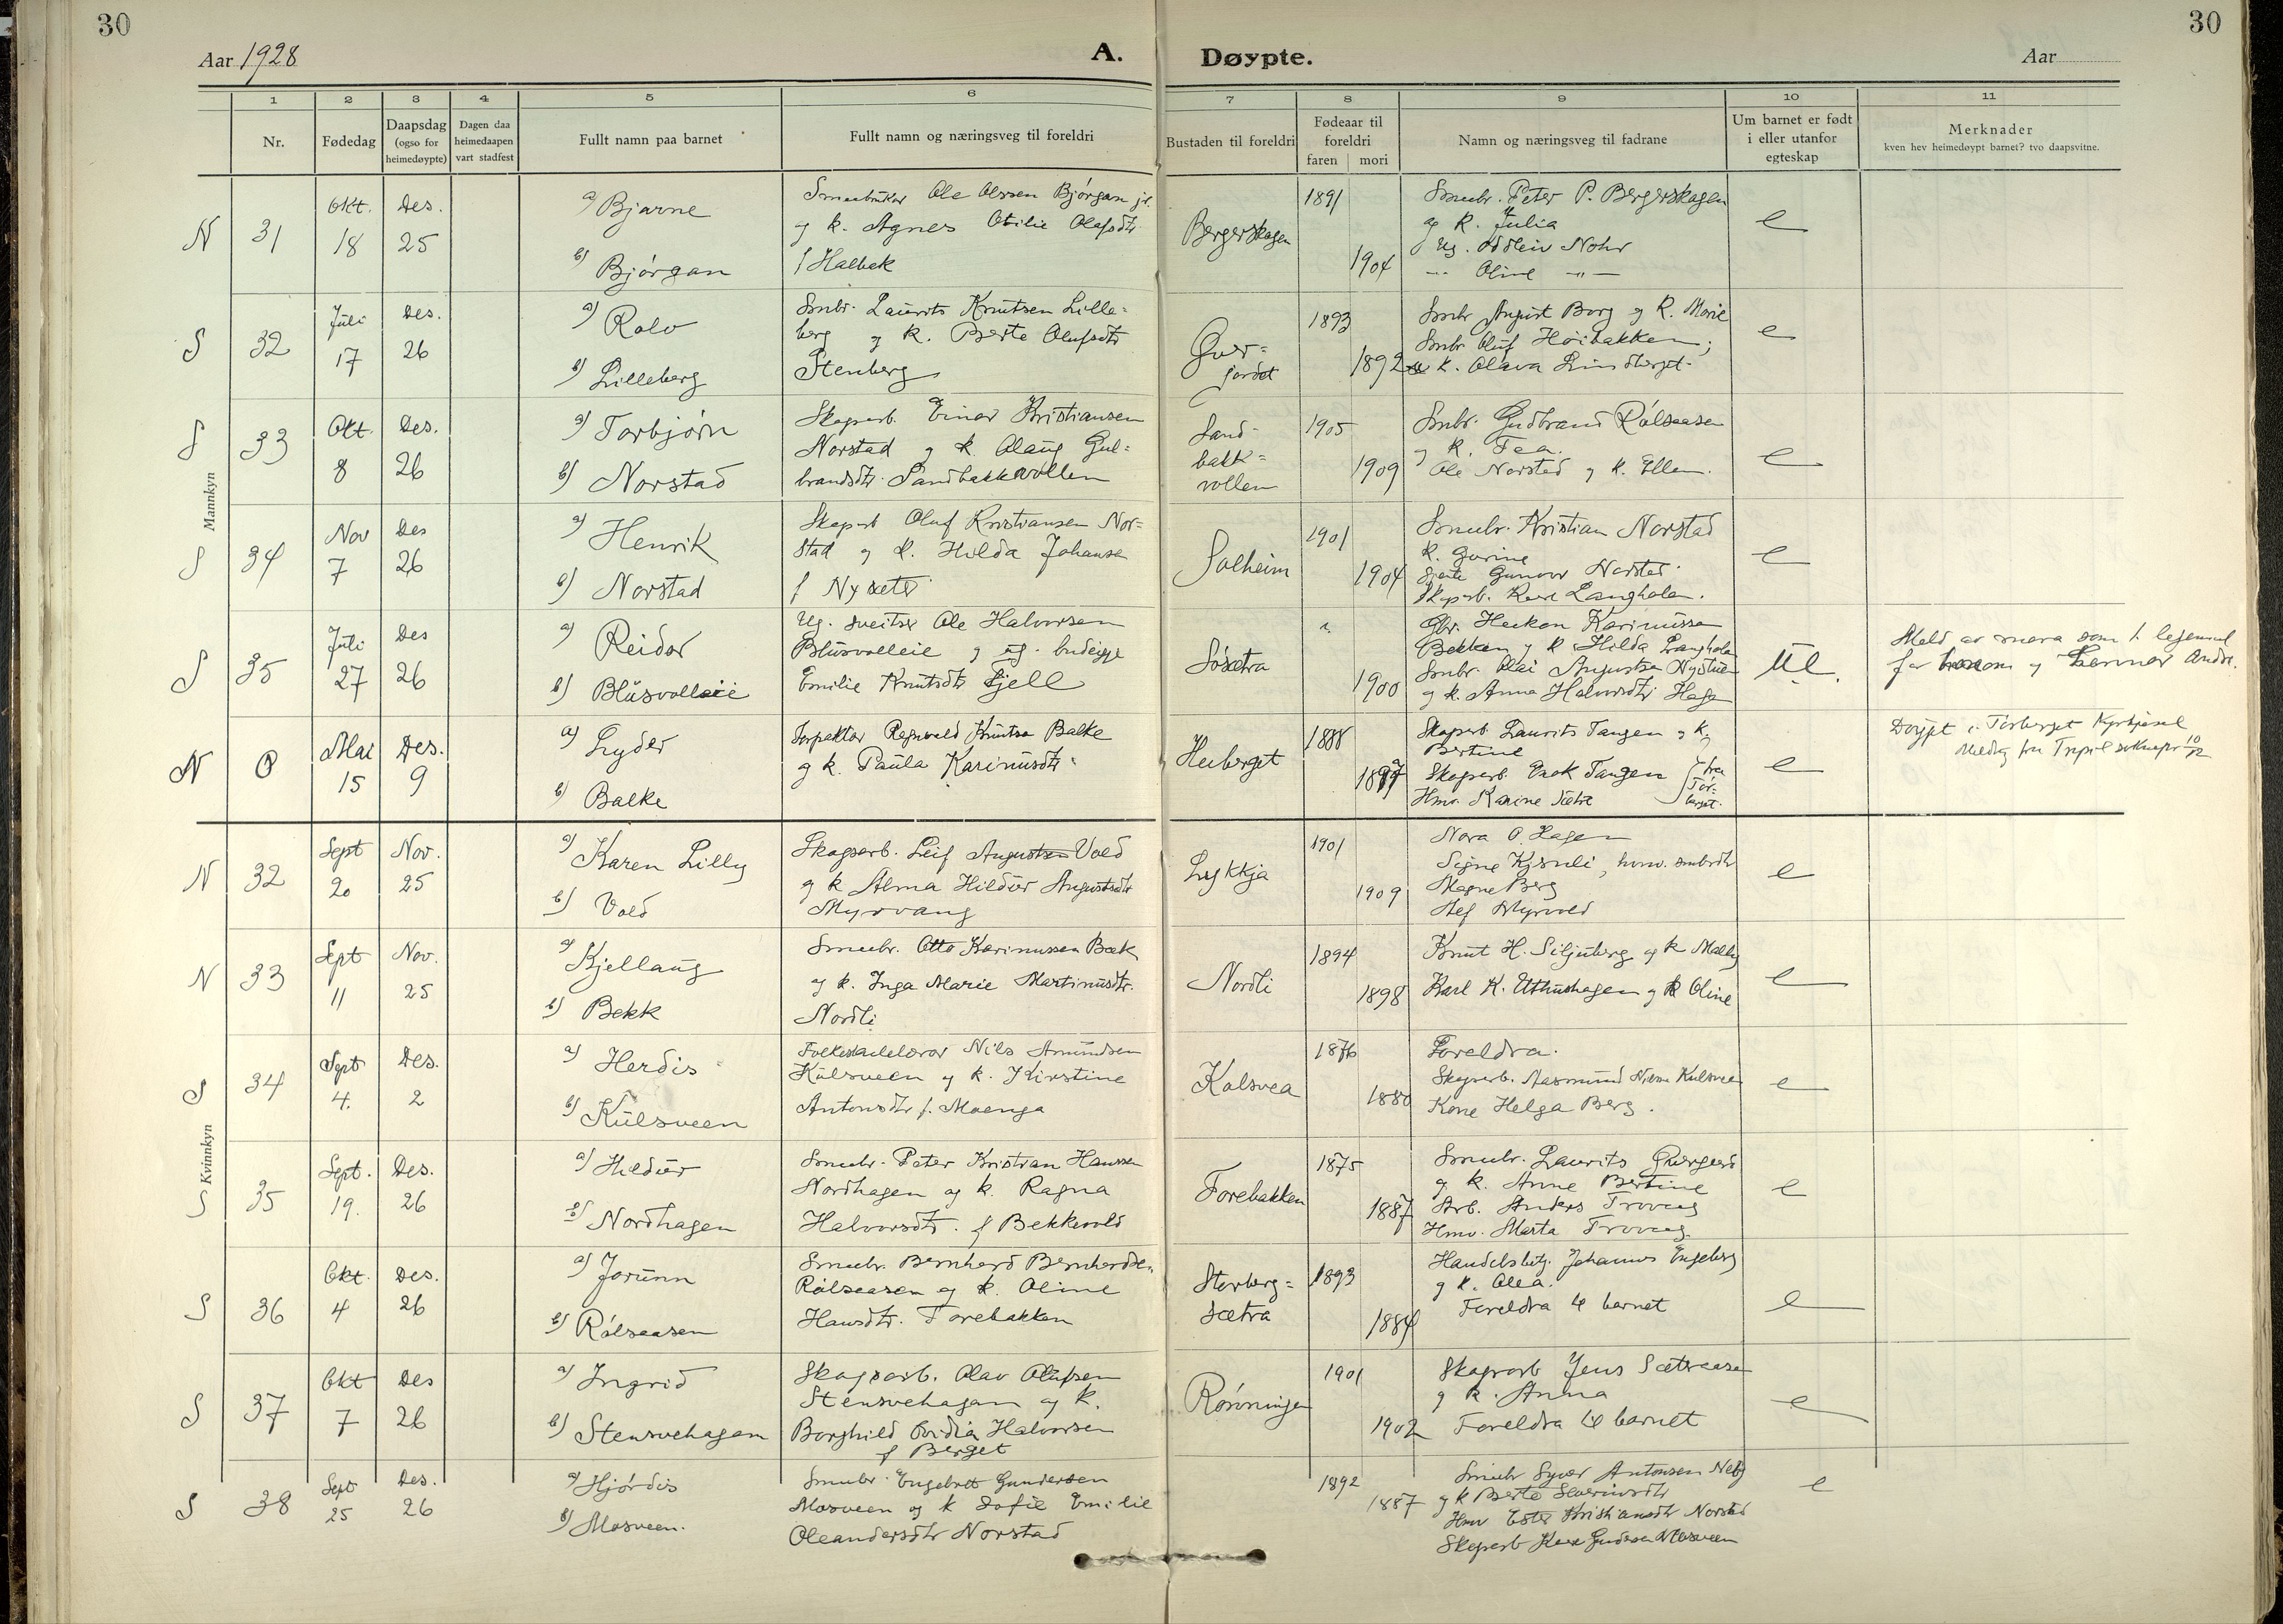 30
30
Aar 1928
A.
Døypte.
Aar
1 2 3 4 5 6 7 8 9 10 11
Nr.
Fødedag
Daapsdag (ogso for heimedøypte)
Dagen daa heimedaapen vart stadfest
Fullt namn paa barnet
Fullt namn og næringsveg til foreldri
Bustaden til foreldri
Fødeaar til foreldri
faren mori
Namn og næringsveg til fadrane
Um barnet er født i eller utanfor egteskap
Merknader
kven hev heimedøypt barnet? tvo daapsvitne.
Mannkyn
N 31
Okt. 18
Des. 25
a) Bjarne
b) Bjørgan
Smaabruker Ole Olssen Bjørgan jr.
og k. Agnes Otilie Olafsdtr
f Halbek
Bergerskagen
1891
1904
Smubr. Peter P. Bergerskagen
og k. Julia
Ug. Oddleiv Nohr
-"- Oline -"-
e
S 32
Juli 17
Des. 26
a) Rolv
b) Lilleberg
Smbr. Laurits Knutsen Lille=
berg og k. Berte Olufsdtr
Stenberg
Gver=
jordet
1893
1892
Smbr August Borg og k. Marie
Smbr Oluf Høibakken;
k. Olava Lindberget.
e
S 33
Okt. 8
Des. 26
a) Torbjørn
b) Norstad
Skogarb. Einar Kristiansen
Norstad og k. Olaug Gul=
brandsdtr. Sandbakkvollen
Sand=
bakk=
vollen
1905
1909
Smbr. Gudbrand Rølsaasen
og k. Tea.
Ole Norstad og k. Ellen.
e
S 34
Nov 7
Des 26
a) Henrik
b) Norstad
Skogarb Oluf Kristiansen Nor=
stad og k. Hilda Johanse
f Nysæter
Solheim
1901
1904
Smubr. Kristian Norstad
k. Gurine
Gjente Gunvor Norstad
Skogarb. Kaare Langholen.
e
S 35
Juli 27
Des 26
a) Reidar
b) Blüsvolleie
Ug. sveitser Ole Halvorsen
Blüsvolleie og ug. budeigje
Emilie Knutsdtr Fjell
Søsætra
1900
Gbr. Haakon Karinussen
Bekken og k Hilda Langholen
Smbr. Olai Augustsen Nystuen
og k. Anna Halvorsdtr Hagen
Ue.
N 0
Mai 15
Des. 9
a) Lyder
b) Balke
Inspektør Ragnvald Knutsen Balke
og k. Paula Karinusdtr.
Heeberget
1888
1897
Skogarb Laurits Tangen og k.
Bertine
Skogarb. Enok Tangen
Hmv. Karine Sætre
fra
Tør-
berget.
e
Døypt i Tørberget Kyrkjesokn
Melding fra Trysil soknepr. 10/12
Kvinnkyn
N 32
Sept 20
Nov. 25
a) Karen Lilly
b) Vold
Skogsarb. Leif Augustsen Vold
og k Alma Hildur Augustsdtr
Myrvang
Lykkja
1901
1909
Nora O. Hagen
Signe Kjernli, hmv. smbrdtr
Magne Berg
Alf Myrvold
e
N 33
Sept 11
Nov. 25
a) Kjellaug
b) Bekk
Smubr. Otto Karinussen Bæk
og k. Inga Marie Martinusdtr.
Nordli
Nordli
1894
1898
Knut H. Siljuberg og k Malby
Karl K. Uthushagen og k Oline
e
S 34
Sept 4.
Des. 2
a) Herdis
b) Külsveen
Folkeskulelærar Nils Amundsen
Külsveen og k. Kirstine
Antonsdtr f. Moenga
Kolsvea
1876
1880
Foreldra.
Skogarb. Aasmund Nilsen Kulsveen
Kone Helga Berg.
e
S 35
Sept. 19.
Des. 26
a) Hildur
b) Nordhagen
Smubr. Peter Kristian Hanssen
Nordhagen og k. Ragna
Halvorsdtr. f Bekkevold
Forebakken
1875
1887
Smubr. Laurits Gvergaard
og k. Anne Bertine
Arb. Anders Trovaag
Hmv. Marta Trovaag.
e
S 36
Okt. 4
Des. 26
a) Jorunn
b) Rølsaasen
Smubr. Bernhard Bernhardsen
Rølsaasen og k. Oline
Hansdtr. Forebakken
Storberg=
sætra
1893
1884
Handelsbetj. Johannes Engeberg
og k. Olea.
Foreldra til barnet
e
S 37
Okt 7
Des 26
a) Ingrid
b) Stensvehagen
Skogsarb. Olav Olufsen
Stensvehagen og k.
Borghild Ovidia Halvorsen
f Berget
Rønningen
1901
1902
Skogsarb Jens Sætreasen
og k. Anna
Foreldra til barnet
e
S 38
Sept 25
Des. 26
a) Hjørdis
b) Mosveen.
Smubr. Engebret Gundersen
Mosveen og k Sofie Emilie
Oleandersdtr Norstad
1892
1887
Smubr Syver Antonsen Neby
og k Berte Severinsdtr
Hmv Ester Kristiansdtr Norstad
Skogarb Kaare Gundersen Mosveen
e